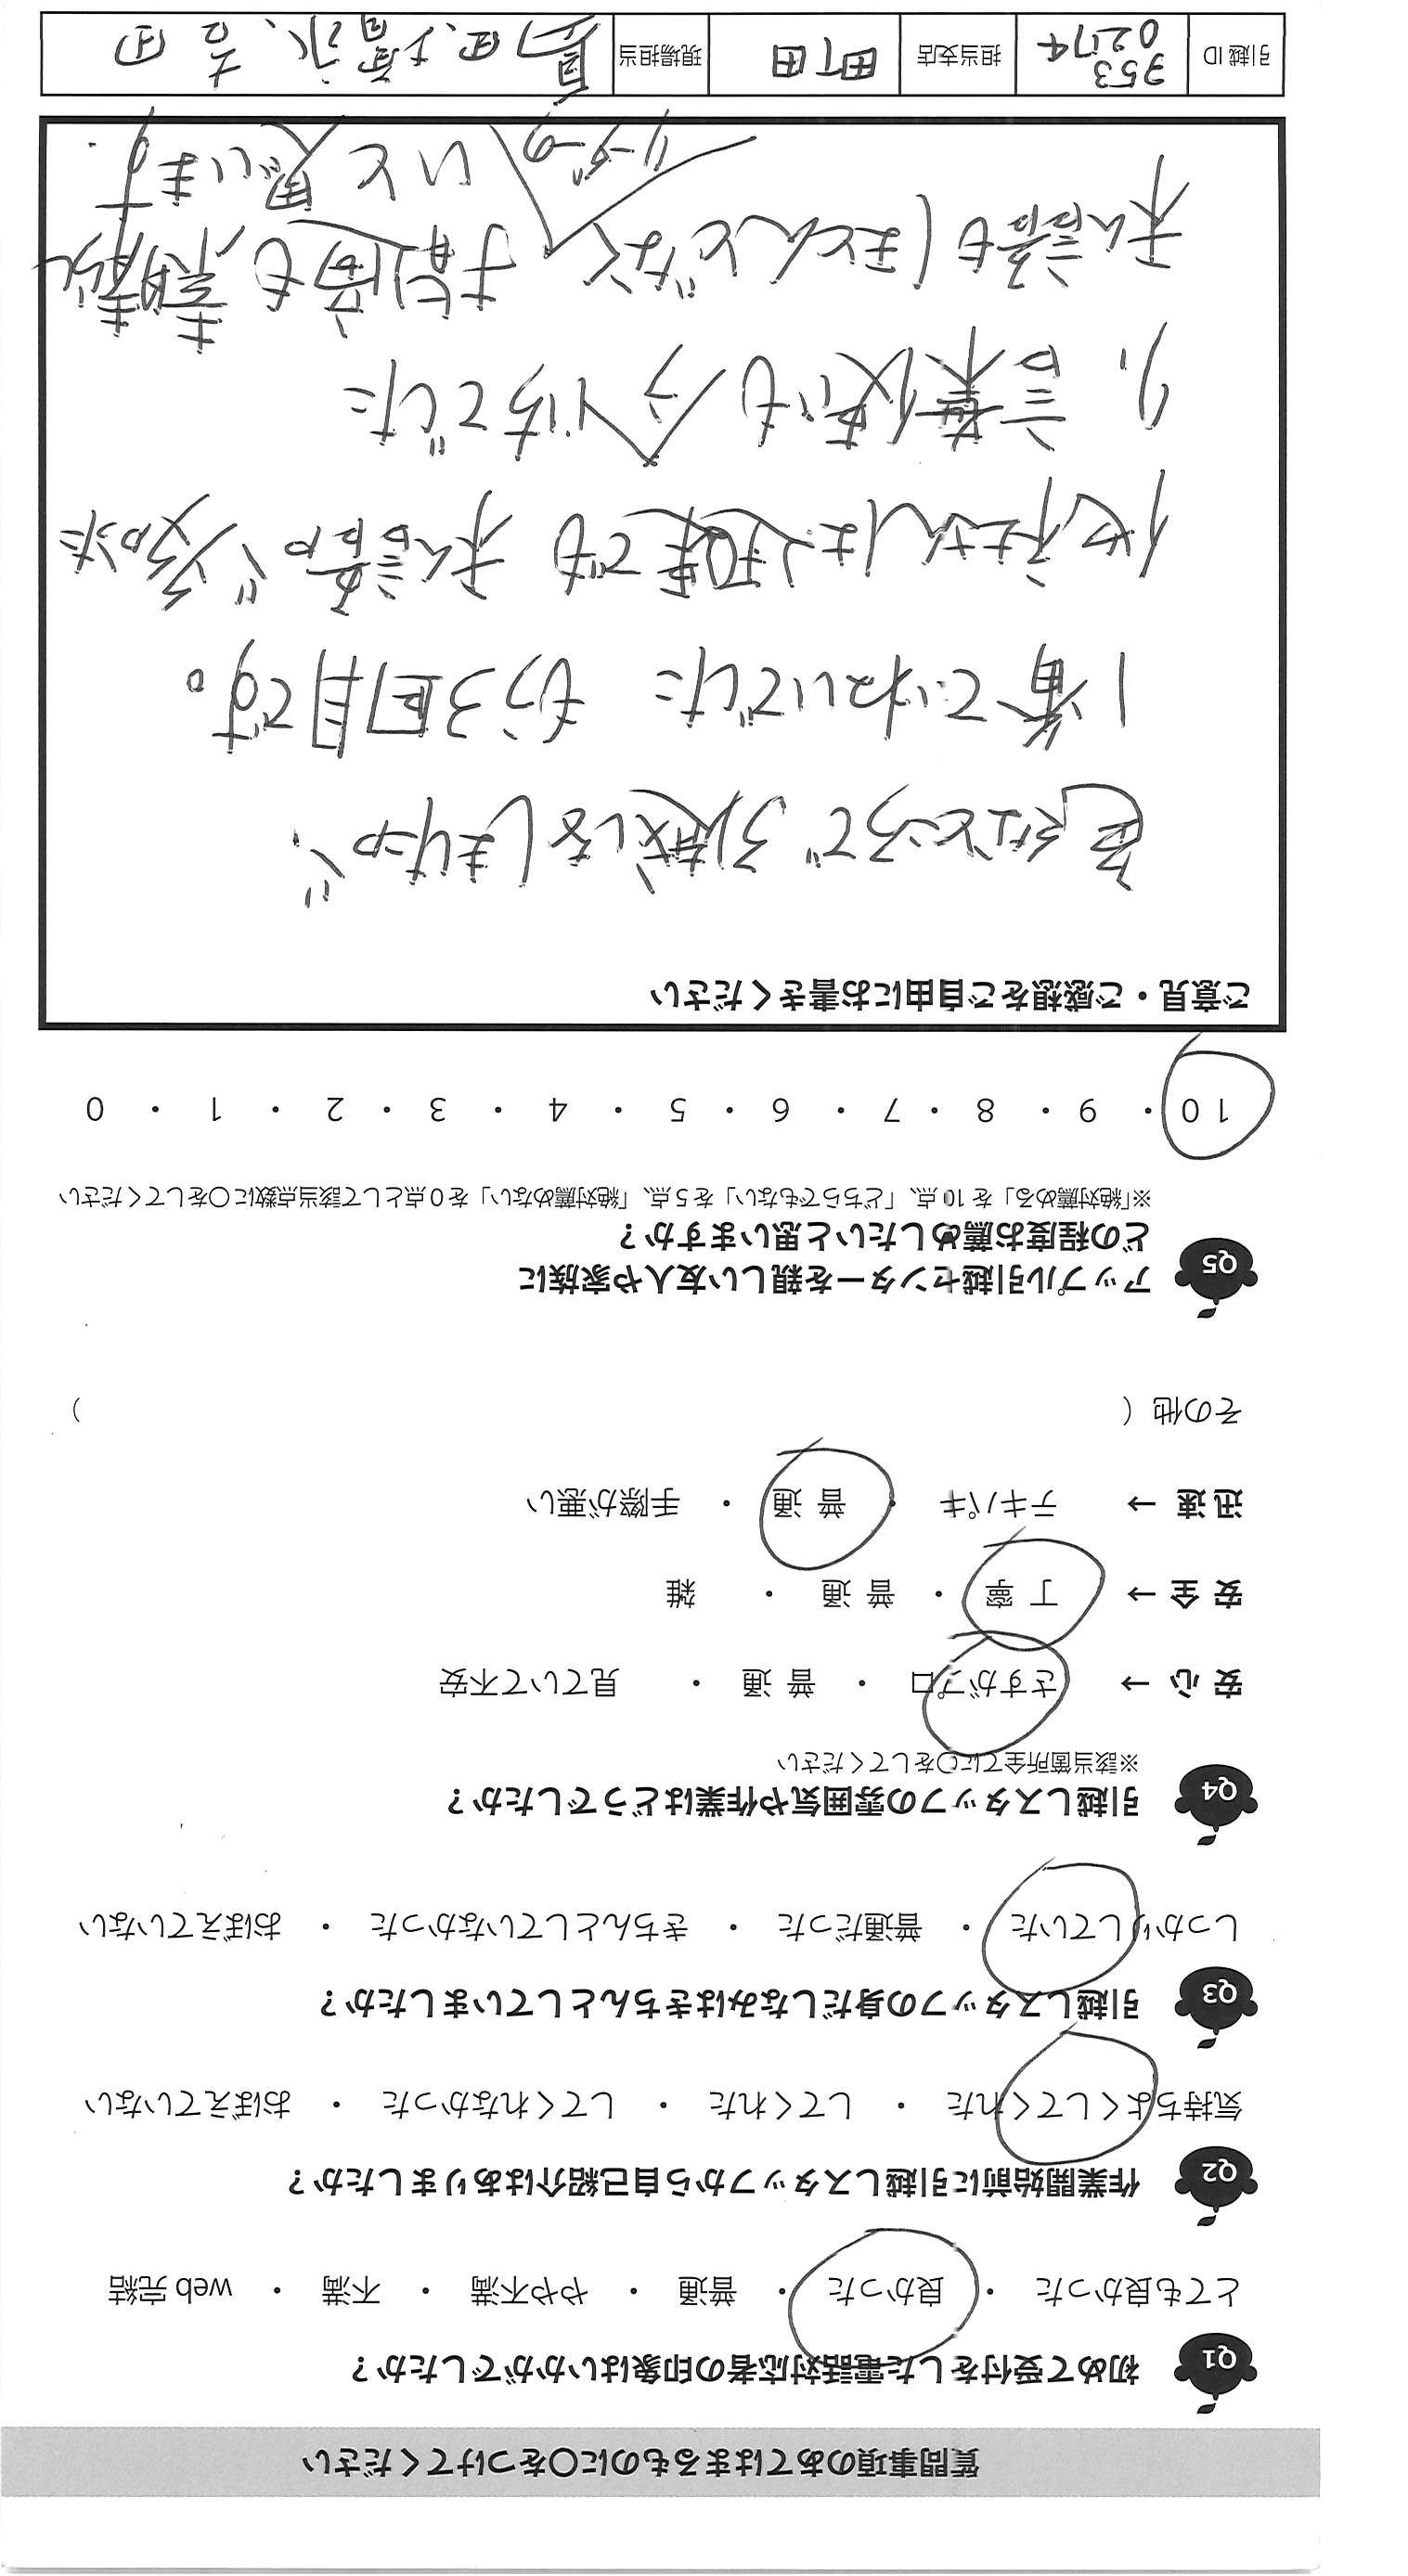 質問事項のあてはまるものに〇をつけてください
Q1 初めて受付をした電話対応者の印象はいかがでしたか？
とても良かった ・ 良かった ・ 普通 ・ やや不満 ・ 不満 ・ web 完結
Q2 作業開始前に引越しスタッフから自己紹介はありましたか？
気持ちよくしてくれた ・ してくれた ・ してくれなかった ・ おぼえていない
Q3 引越しスタッフの身だしなみはきちんとしていましたか？
しっかりしていた ・ 普通だった ・ きちんとしていなかった ・ おぼえていない
Q4 引越しスタッフの雰囲気や作業はどうでしたか？
※該当箇所全てに〇をしてください
安 心 → さすがプロ ・ 普 通 ・ 見ていて不安
安 全 → 丁 寧 ・ 普 通 ・ 雑
迅 速 → テキパキ ・ 普 通 ・ 手際が悪い
その他（ ）
Q5 アップル引越センターを親しい友人や家族に
どの程度お薦めしたいと思いますか？
※「絶対薦める」を 10 点、「どちらでもない」を 5 点、「絶対薦めない」を 0 点として該当点数に〇をしてください
10 ・ 9 ・ 8 ・ 7 ・ 6 ・ 5 ・ 4 ・ 3 ・ 2 ・ 1 ・ 0
ご意見・ご感想をご自由にお書きください
色々なところで引越しをしますが、
1番ていねいでした もう3回目です。
他社さんは現場でも私語が多かった
り、言葉使いも今いちでした
私語もほとんどなく リーダーの 指信も素晴らし
いと思います。
引越 ID 353 0274 担当支店 町田 現場担当